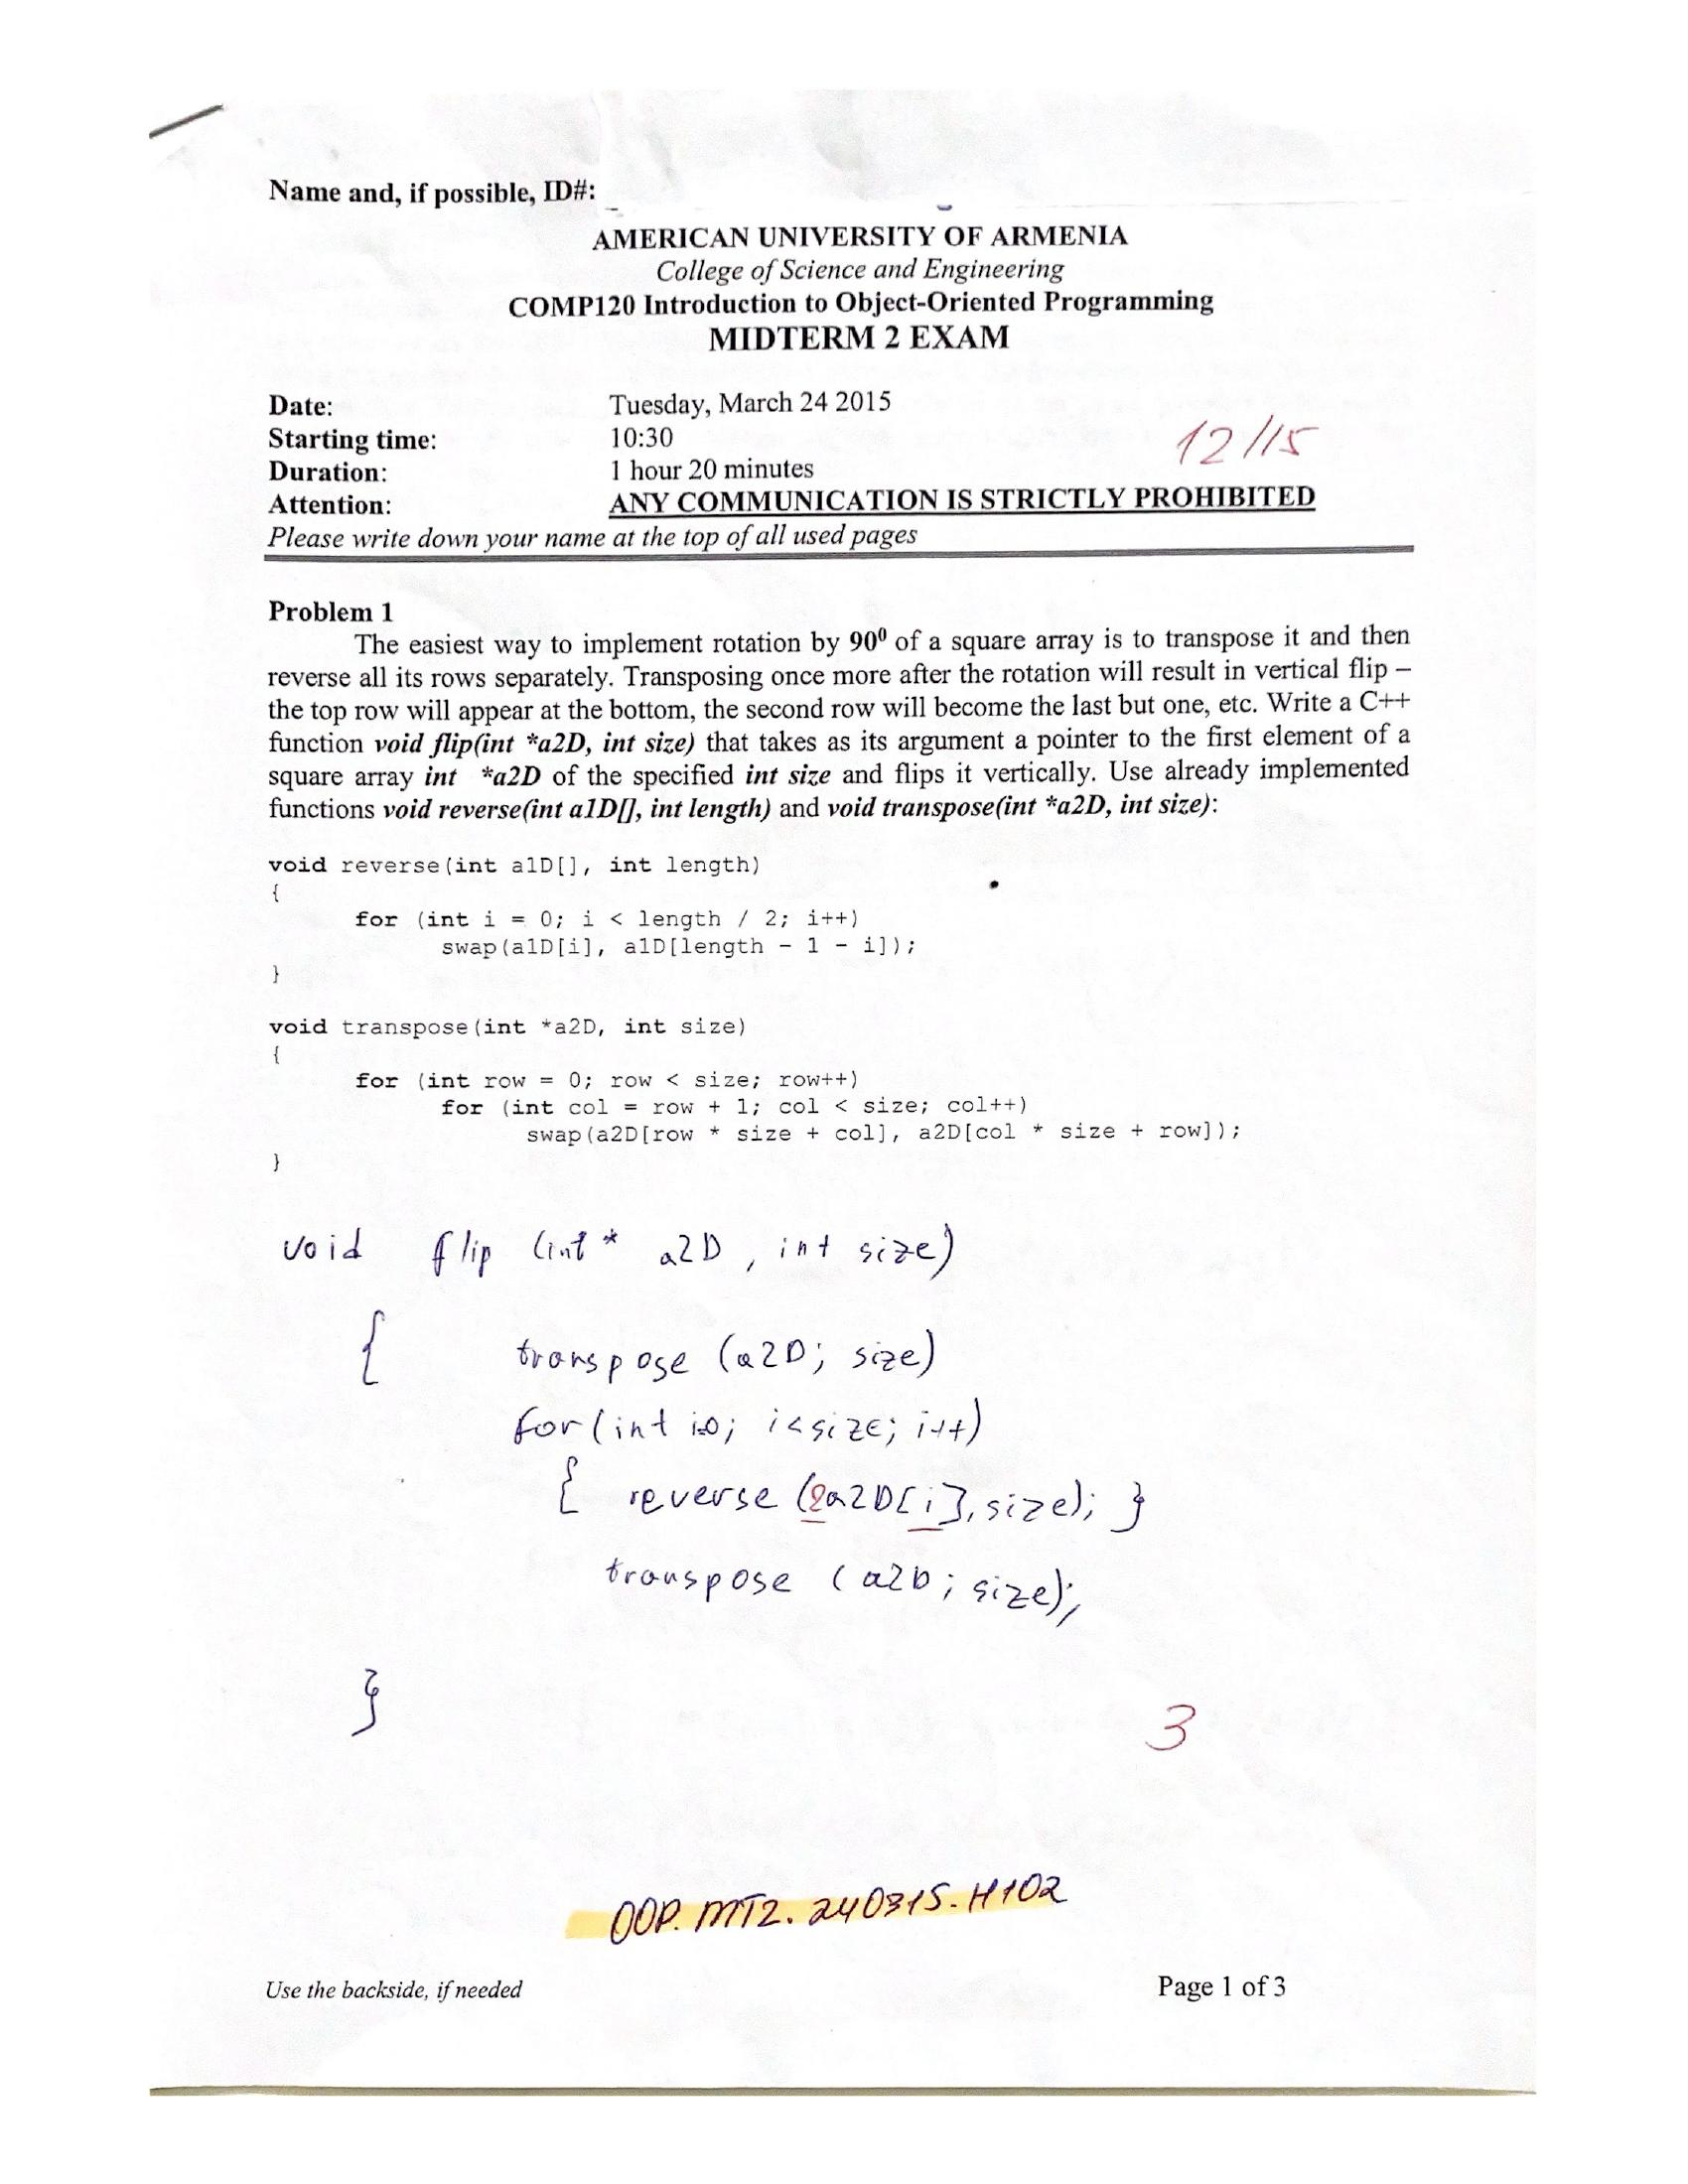 Name and, if possible, ID#:
AMERICAN UNIVERSITY OF ARMENIA
College of Science and Engineering
COMP120 Introduction to Object-Oriented Programming
MIDTERM 2 EXAM
Date: Tuesday, March 24 2015
Starting time: 10:30
12/15
Duration: 1 hour 20 minutes
Attention: ANY COMMUNICATION IS STRICTLY PROHIBITED
Please write down your name at the top of all used pages
Problem 1
The easiest way to implement rotation by 90⁰ of a square array is to transpose it and then
reverse all its rows separately. Transposing once more after the rotation will result in vertical flip –
the top row will appear at the bottom, the second row will become the last but one, etc. Write a C++
function void flip(int *a2D, int size) that takes as its argument a pointer to the first element of a
square array int *a2D of the specified int size and flips it vertically. Use already implemented
functions void reverse(int a1D[], int length) and void transpose(int *a2D, int size):
void reverse(int a1D[], int length)
{
for (int i = 0; i < length / 2; i++)
swap(a1D[i], a1D[length - 1 - i]);
}
void transpose(int *a2D, int size)
{
for (int row = 0; row < size; row++)
for (int col = row + 1; col < size; col++)
swap(a2D[row * size + col], a2D[col * size + row]);
}
void flip (int * a2D , int size)
{ transpose (a2D; size)
for (int i=0; i<size; i++)
{ reverse (&a2D[i], size); }
transpose (a2D; size);
}
3
OOP. MT2. 240315. H102
Use the backside, if needed
Page 1 of 3